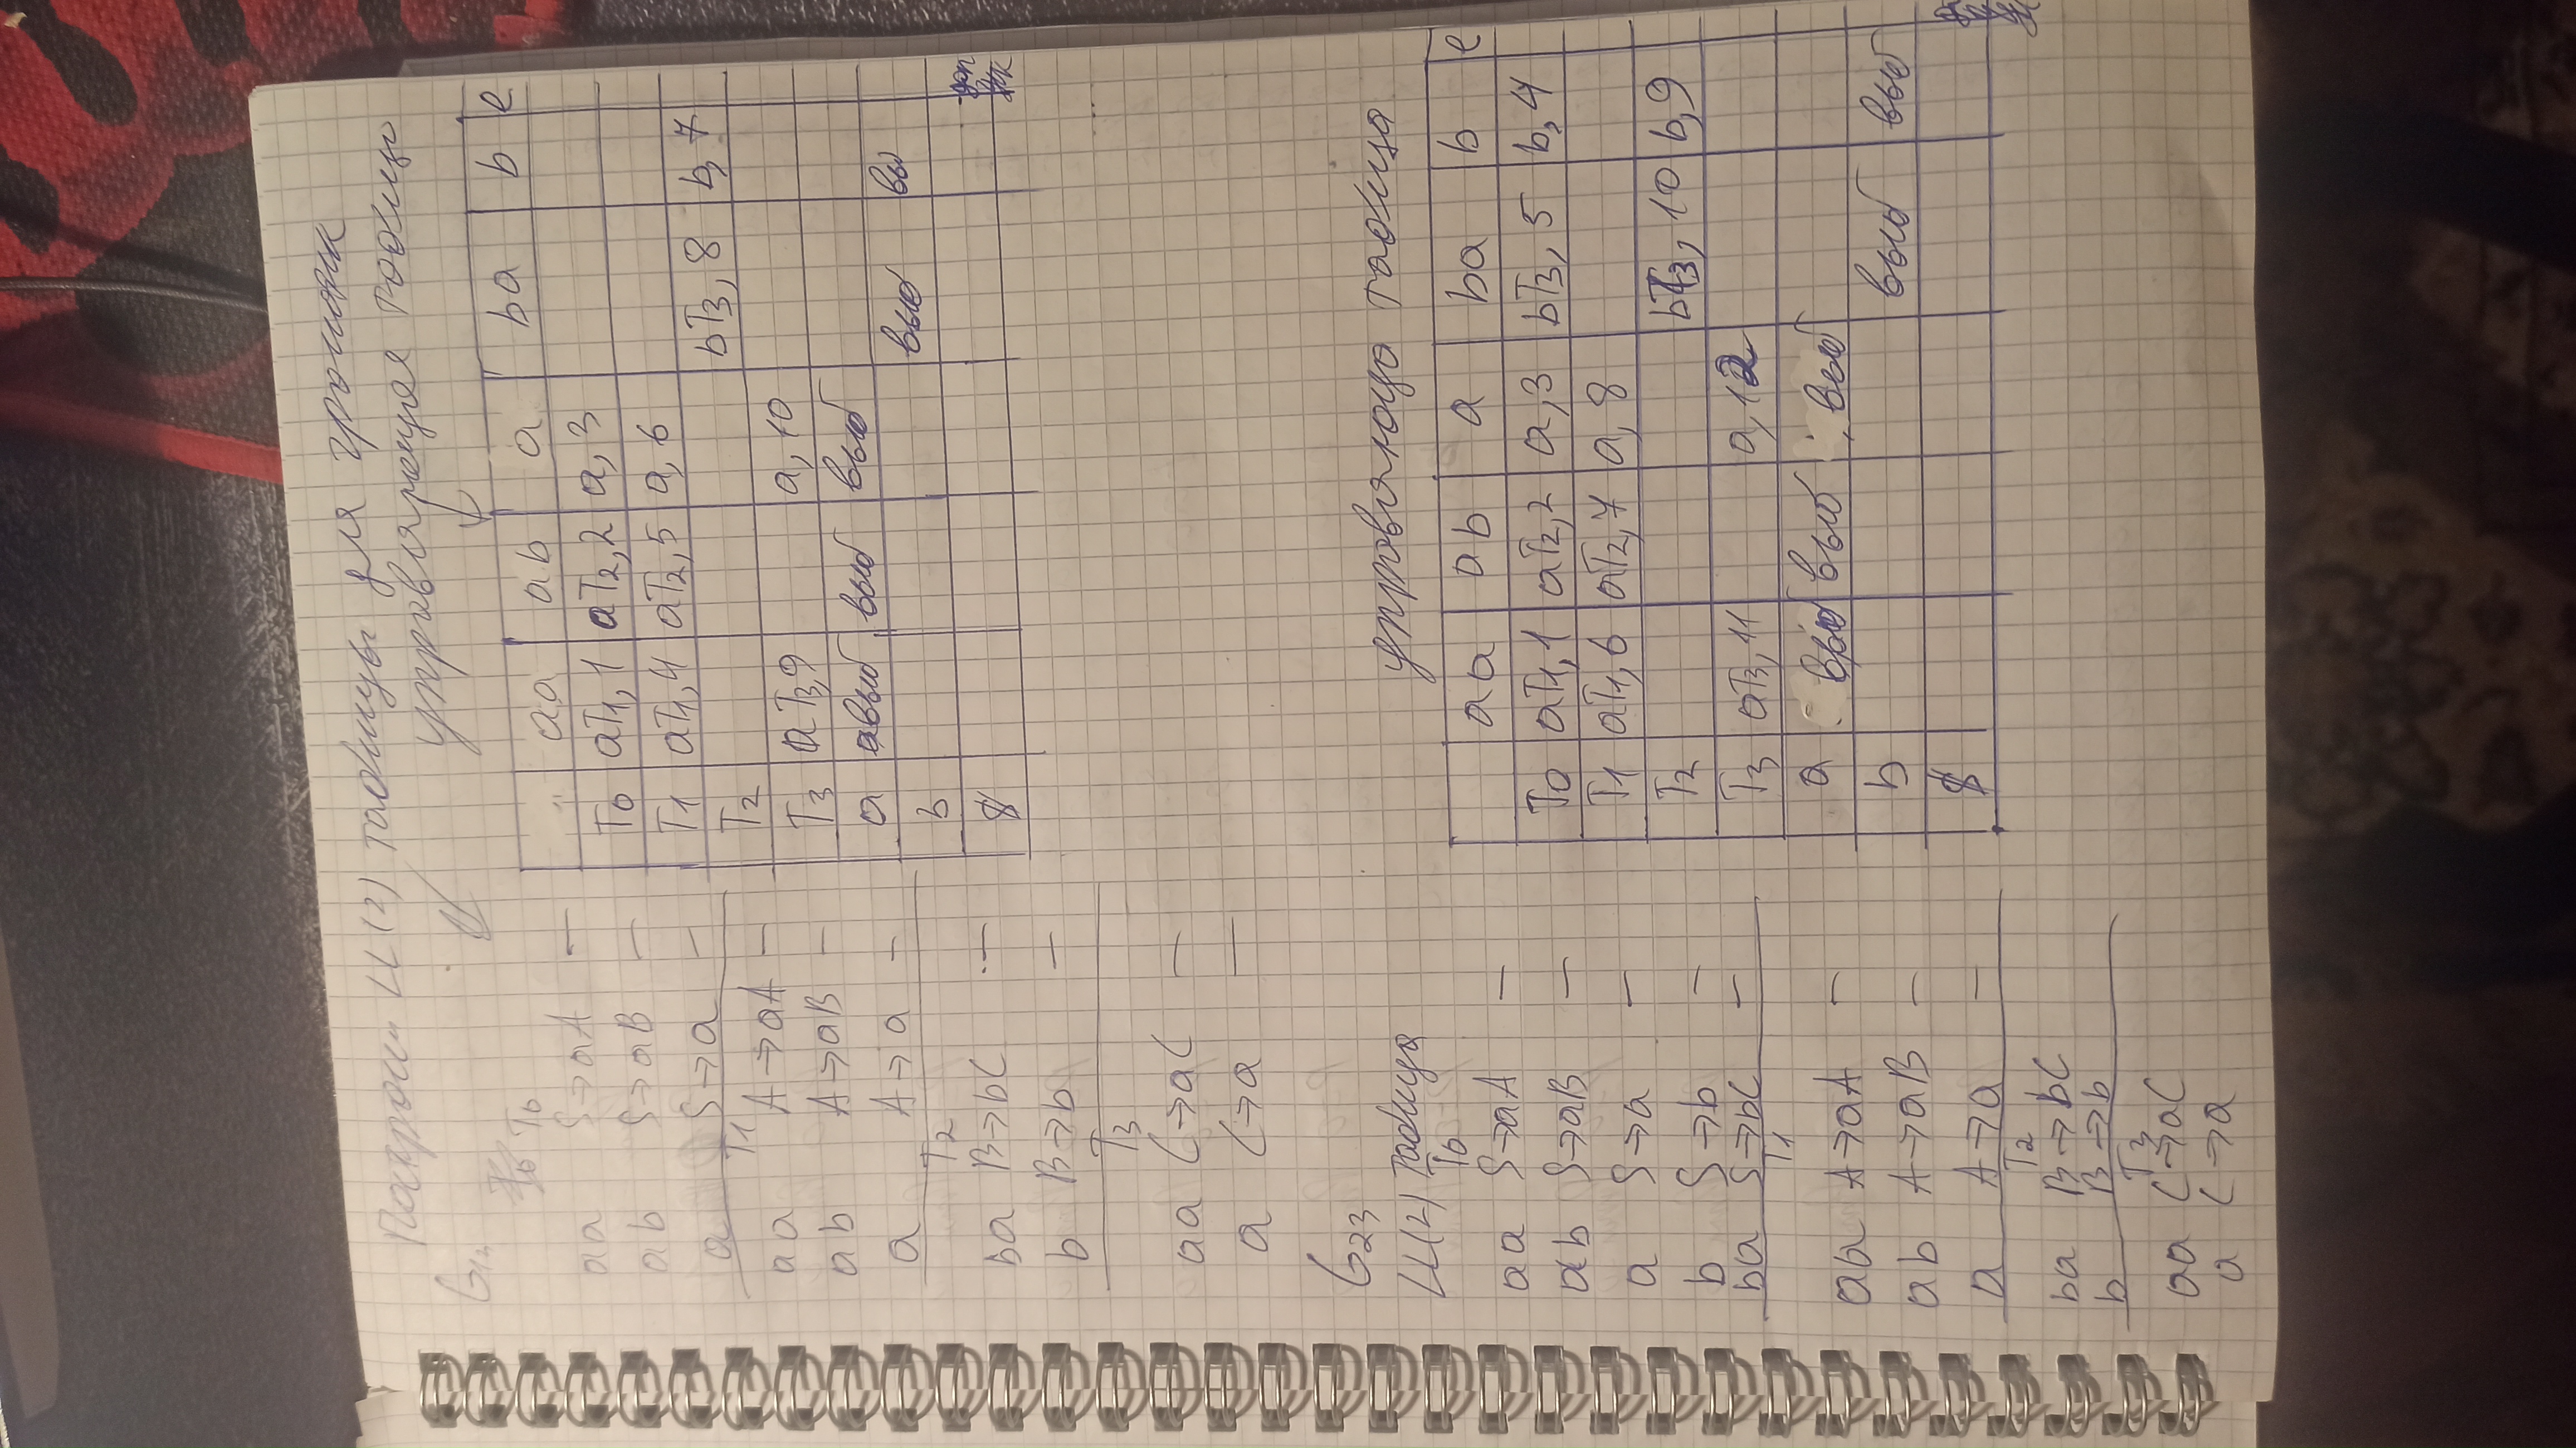 Построим LL(2) таблицы для грамматик
управляющая таблица
G₁₃
T₀
aa S→aA —
ab S→aB —
a S→a —
T₁
aa A→aA —
ab A→aB —
a A→a —
T₂
ba B→bC —
b B→b —
T₃
aa C→aC —
a C→a —
aa ab a ba b e
T₀ aT₁,1 aT₂,2 a,3
T₁ aT₁,4 aT₂,5 a,6
T₂ bT₃,8 b,7
T₃ aT₃,9 a,10
a выб выб выб
b выб вы
$ доп
G₂₃
LL(2) таблица
T₀
aa S→aA —
ab S→aB —
a S→a —
b S→b —
ba S→bC —
T₁
aa A→aA —
ab A→aB —
a A→a —
T₂
ba B→bC
b B→b
T₃
aa C→aC
a C→a
управляюща таблица
aa ab a ba b e
T₀ aT₁,1 aT₂,2 a,3 bT₃,5 b,4
T₁ aT₁,6 aT₂,7 a,8
T₂ bT₃,10 b,9
T₃ aT₃,11 a,12
a выб выб выб
b выб выб
$